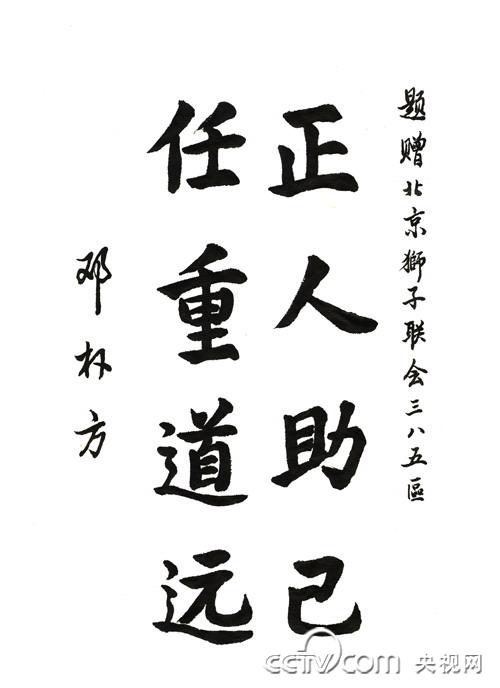 题赠北京獅子联会三八五區
正人助己
任重道远
邓朴方
CCTV.com 央视网